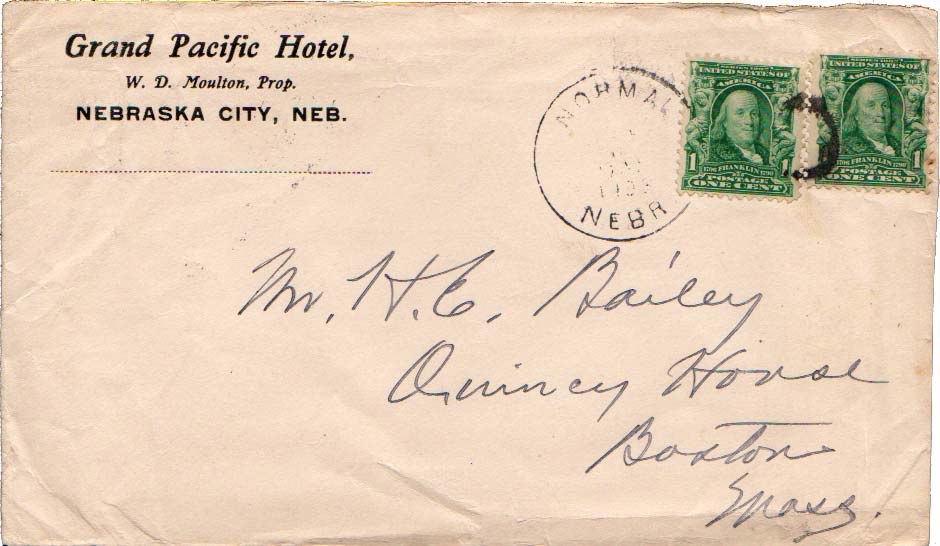 Grand Pacific Hotel,
W. D. Moulton, Prop.
NEBRASKA CITY, NEB.
NORMAL
NEBR
SERIES 1902
UNITED STATES OF
AMERICA
1706 FRANKLIN 1790
1 1
POSTAGE
ONE CENT
SERIES 1902
UNITED STATES OF
AMERICA
1706 FRANKLIN 1790
1
POSTAGE
ONE CENT
Mr. H. C. Bailey
Quincy House
Boston
Mass.